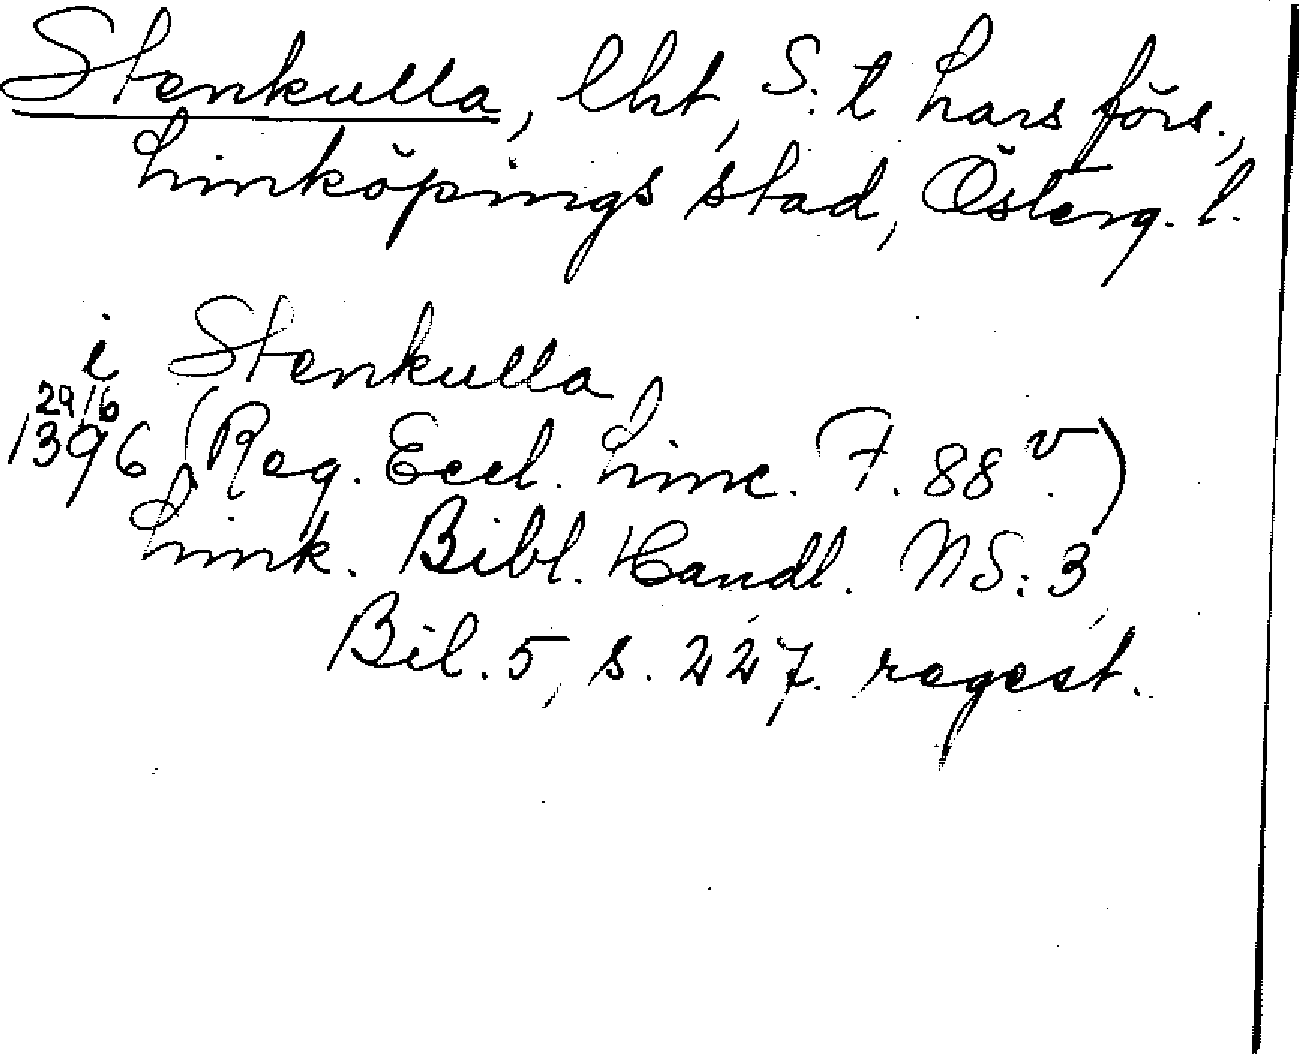 Stenkulla, lht, S:t Lars förs.,
Linköpings stad, Österg. l.
i Stenkulla
29/6
1396 (Reg. Eccl. Linc. F. 88 v.)
Link. Bibl. Handl. NS: 3,
Bil. 5, s. 227. regest.